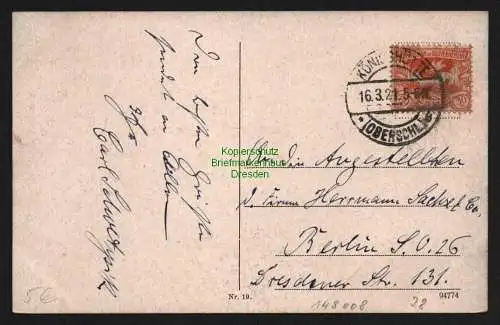 Den besten Grüße
sendet an Allen
Carl
KÖNIGSHÜTTE
16.3.21. 5-6N.
* (OBERSCHL.) B
Kopierschutz
Briefmarkenhaus
Dresden
An die Angestellten
d. Firma Herrmann Sachs & Co.
Berlin S.O. 26
Dresdener Str. 131.
5 €
Nr. 19.
148008
28
94774